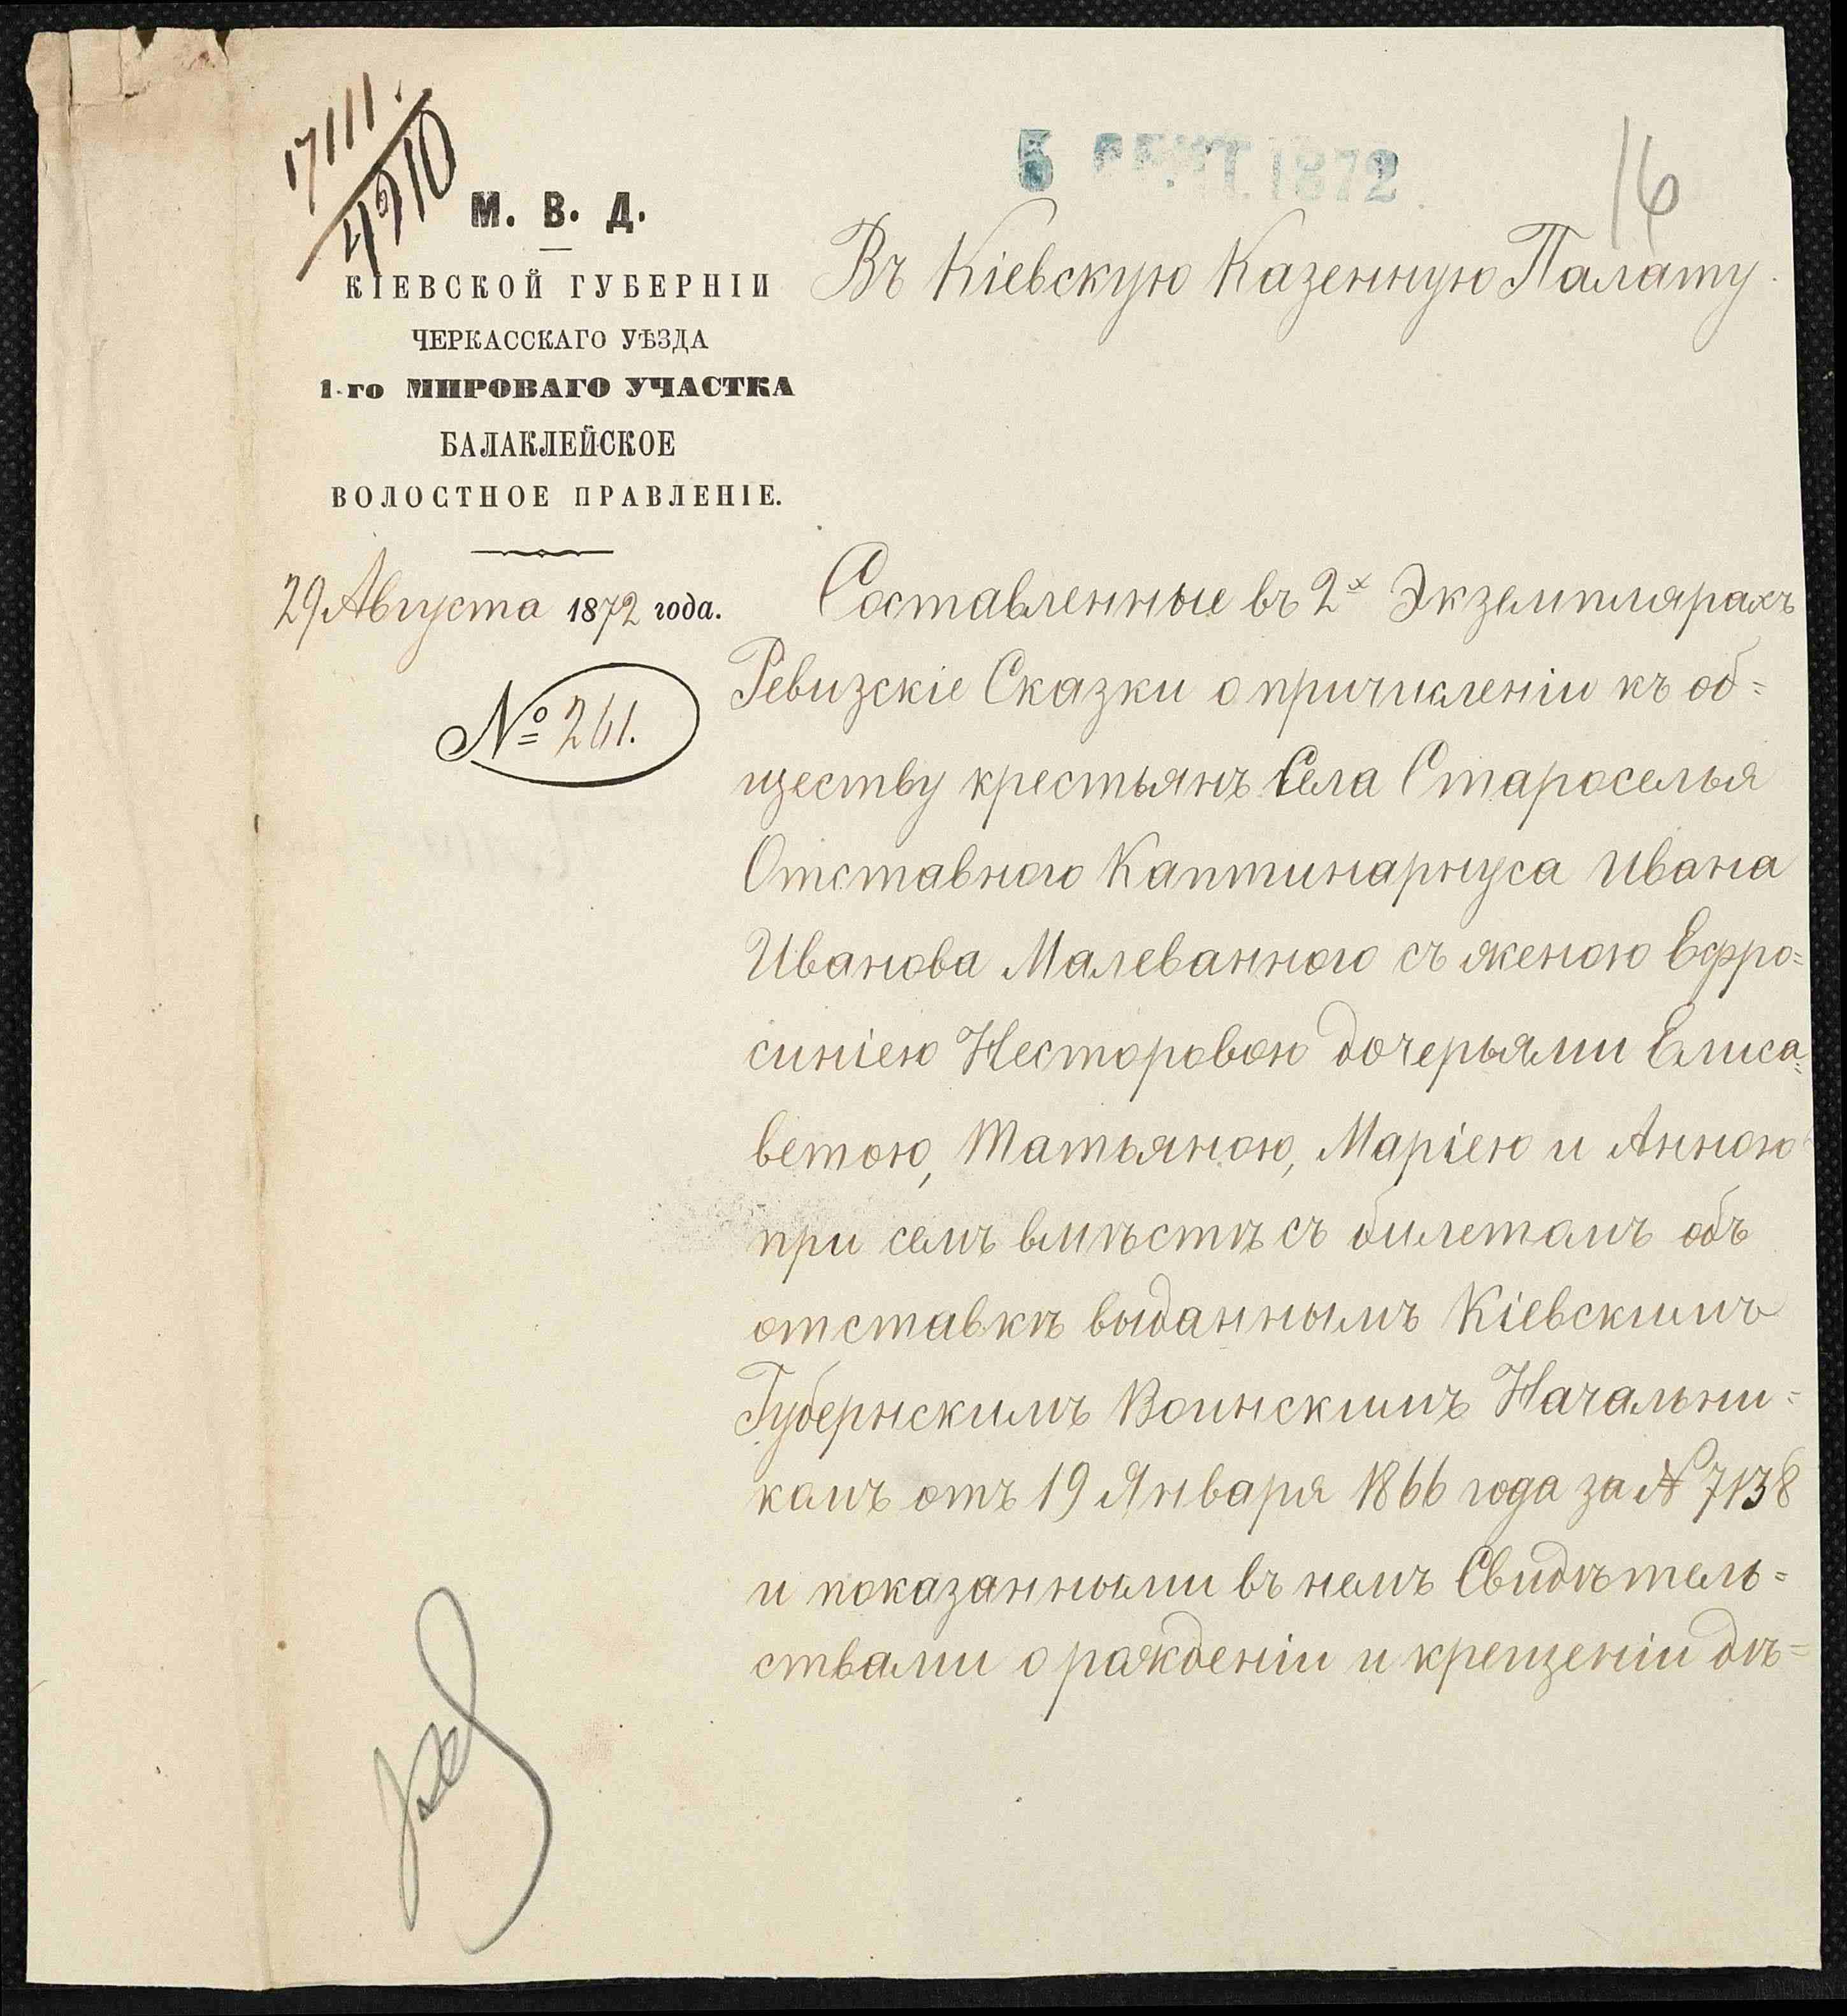 17111.
4910
5 СЕНТ. 1872
16
М. В. Д.
КІЕВСКОЙ ГУБЕРНІИ
ЧЕРКАССКАГО УѢЗДА
1-го МИРОВАГО УЧАСТКА
БАЛАКЛЕЙСКОЕ
ВОЛОСТНОЕ ПРАВЛЕНІЕ.
29 Августа 1872 года.
№ 261.
Въ Кіевскую Казенную Палату.
Составленные въ 2х Экземплярахъ
Ревизскіе Сказки о причисленіи къ об=
ществу крестьянъ Села Староселья
Отставного Каптинармуса Ивана
Иванова Малеванного съ женою Ефро=
синіею Несторовою дочерьями Елиса=
ветою, Татьяною, Маріею и Анною
при семъ вмѣстѣ съ билетомъ объ
отставкѣ выданнымъ Кіевскимъ
Губернскимъ Воинскимъ Начальни=
комъ отъ 19 Января 1866 года за № 7138
и показанными въ немъ Свидѣтель=
ствами о рожденіи и крещеніи дѣ=